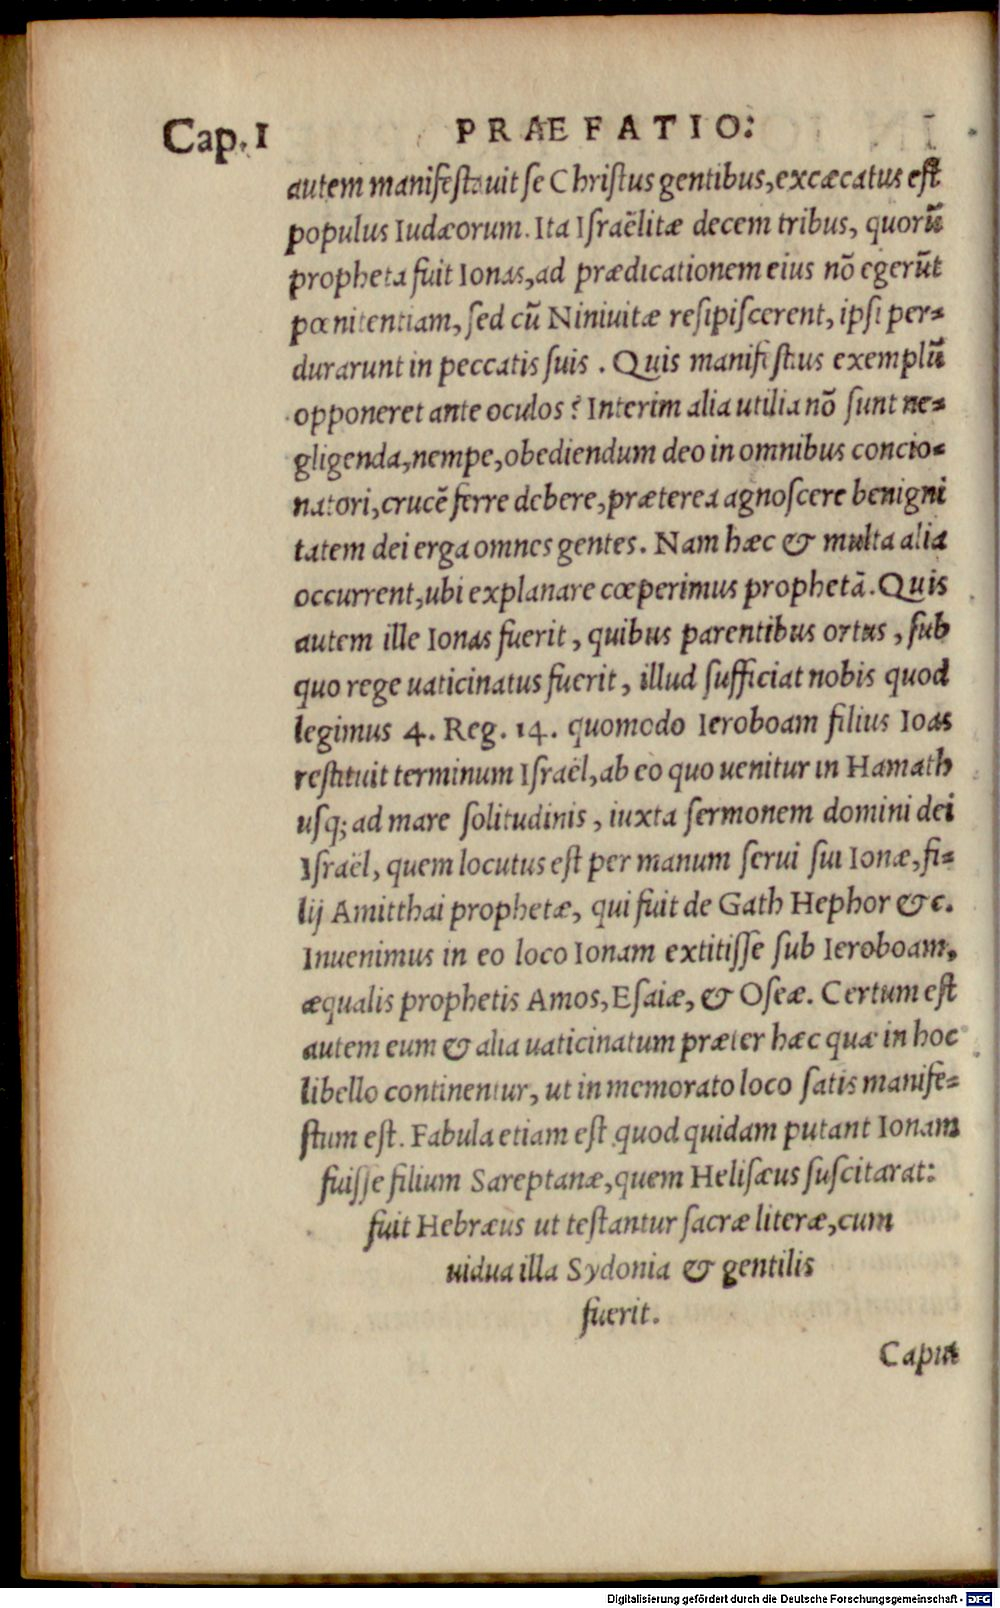 Cap. I
PRÆFATIO:
autem manifeſtauit ſe Chriſtus gentibus, excæcatus eſt
populus Iudæorum. Ita Iſraëlitæ decem tribus, quorũ
propheta fuit Ionas, ad prædicationem eius nõ egerũt
pœnitentiam, ſed cũ Niniuitæ reſipiſcerent, ipſi per=
durarunt in peccatis ſuis . Quis manifeſtius exemplũ
opponeret ante oculos? Interim alia utilia nõ ſunt ne=
gligenda, nempe, obediendum deo in omnibus concio=
natori, crucẽ ferre debere, præterea agnoſcere benigni
tatem dei erga omnes gentes. Nam hæc & multa alia
occurrent, ubi explanare cœperimus prophetã. Quis
autem ille Ionas fuerit, quibus parentibus ortus, ſub
quo rege uaticinatus fuerit, illud ſufficiat nobis quod
legimus 4. Reg. 14. quomodo Ieroboam filius Ioas
reſtituit terminum Iſraël, ab eo quo uenitur in Hamath
uſq; ad mare ſolitudinis, iuxta ſermonem domini dei
Iſraël, quem locutus eſt per manum ſerui ſui Ionæ, fi=
lij Amitthai prophetæ, qui fuit de Gath Hephor &c.
Inuenimus in eo loco Ionam extitiſſe ſub Ieroboam,
æqualis prophetis Amos, Eſaiæ, & Oſeæ. Certum eſt
autem eum & alia uaticinatum præter hæc quæ in hoc
libello continentur, ut in memorato loco ſatis manife=
ſtum eſt. Fabula etiam eſt quod quidam putant Ionam
fuiſſe filium Sareptanæ, quem Heliſæus ſuſcitarat:
fuit Hebræus ut teſtantur ſacræ literæ, cum
uidua illa Sydonia & gentilis
fuerit.
Caput
Digitalisierung gefördert durch die Deutsche Forschungsgemeinschaft - DFG